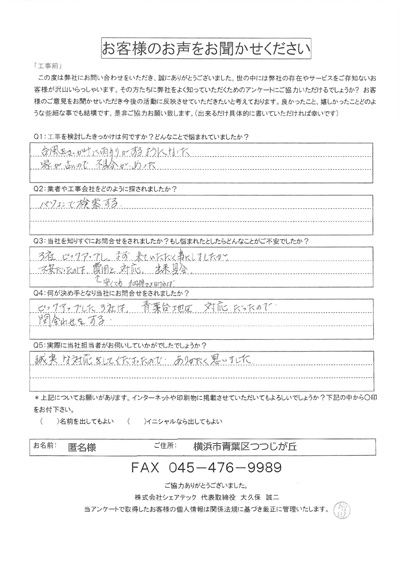 お客様のお声をお聞かせください
「工事前」
この度は弊社にお問い合わせをいただき、誠にありがとうございました。世の中には弊社の存在やサービスをご存知ないお
客様が沢山いらっしゃいます。その方たちに弊社をよく知っていただくためのアンケートにご協力いただけるでしょうか？お客
様のご意見をお聞かせいただき今後の活動に反映させていただきたいと考えております。良かったこと、嬉しかったことどのよ
うな些細な事でも結構です。是非ご協力お願い致します。(出来るだけ具体的に書いていただければ幸いです)
Q1:工事を検討したきっかけは何ですか？どんなことで悩まれていましたか？
雨もりがするようになった
家が古いので 不具合があった
Q2:業者や工事会社をどのように探されましたか？
パソコンで検索する
Q3:当社を知りすぐにお問合せをされましたか？もし悩まれたとしたらどんなことがご不安でしたか？
3社 ピックアップし、まず 来ていただく事にしましたが
不安だったのは、費用と対応、出来具合
Q4:何が決め手となり当社にお問合せをされましたか？
ピックアップした3社は、青葉台地区 対応だったので
問合わせをする
Q5:実際に当社担当者がお伺いしていかがでしたでしょうか？
誠実な対応をしてくださったので ありがたく思いました
＊上記についてお願いがあります。インターネットや印刷物に掲載させていただいてもよろしいでしょうか？下記の中から〇印
をお付下さい。
(　　)名前を出してもよい　(　　)イニシャルなら出してもよい
お名前:　匿名様　ご住所:　横浜市青葉区つつじが丘
FAX 045－476－9989
ご協力ありがとうございました。
株式会社シェアテック 代表取締役 大久保 誠二
当アンケートで取得したお客様の個人情報は関係法規に基づき厳正に管理いたします。